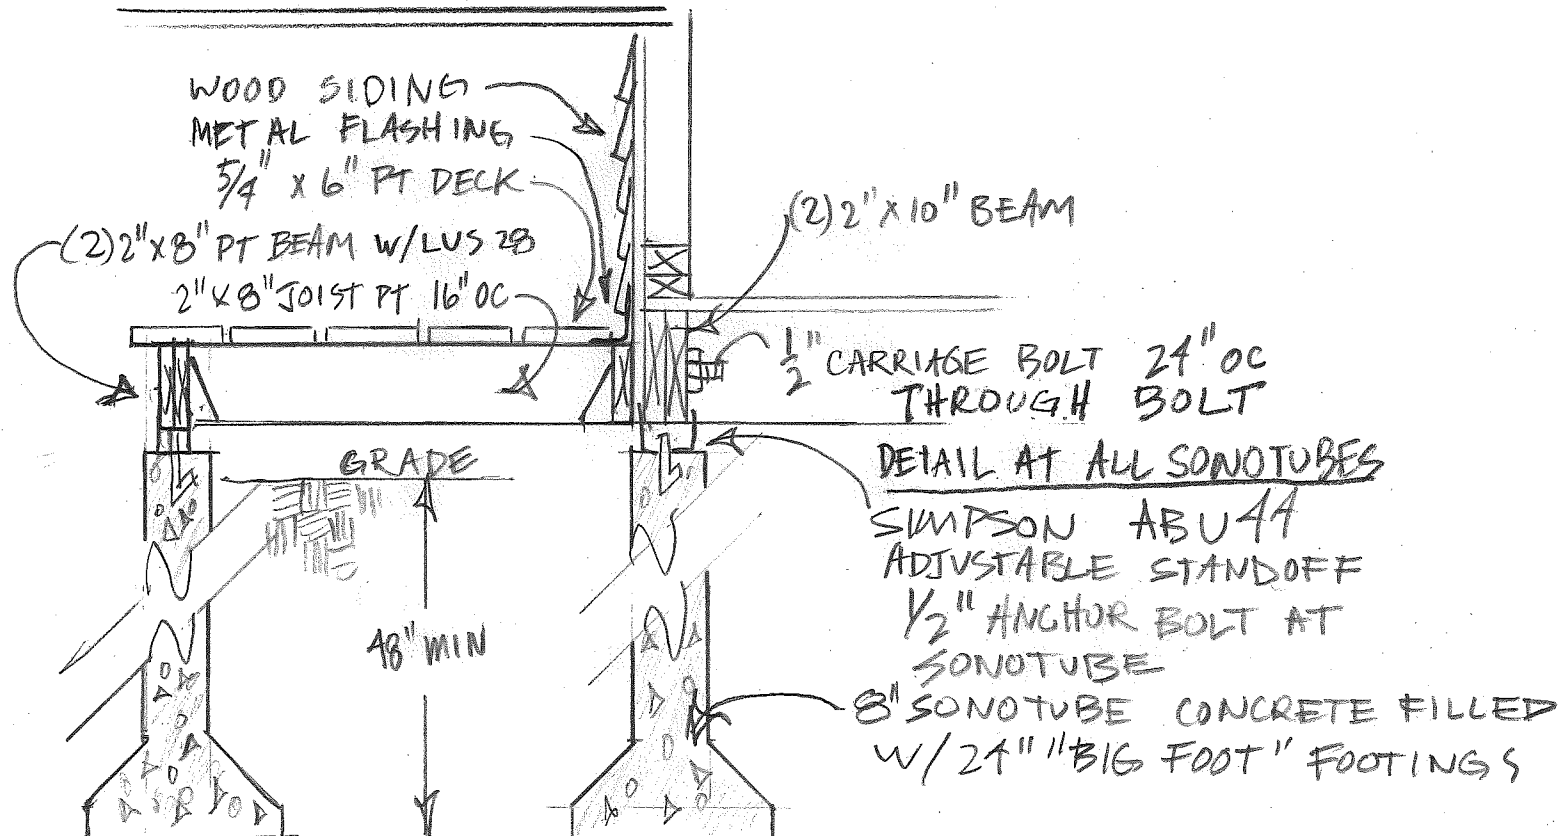 WOOD SIDING
METAL FLASHING
5/4" X 6" PT DECK
(2) 2" X 8" PT BEAM W/LUS 28
2" X 8" JOIST PT 16" OC
(2) 2" X 10" BEAM
1/2" CARRIAGE BOLT 24" OC
THROUGH BOLT
GRADE
48" MIN
DETAIL AT ALL SONOTUBES
SIMPSON ABU44
ADJUSTABLE STANDOFF
1/2" ANCHOR BOLT AT
SONOTUBE
8" SONOTUBE CONCRETE FILLED
W/ 24" "BIG FOOT" FOOTINGS